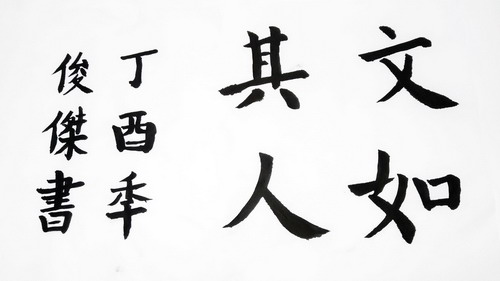 文如
其人
丁酉年
俊傑書